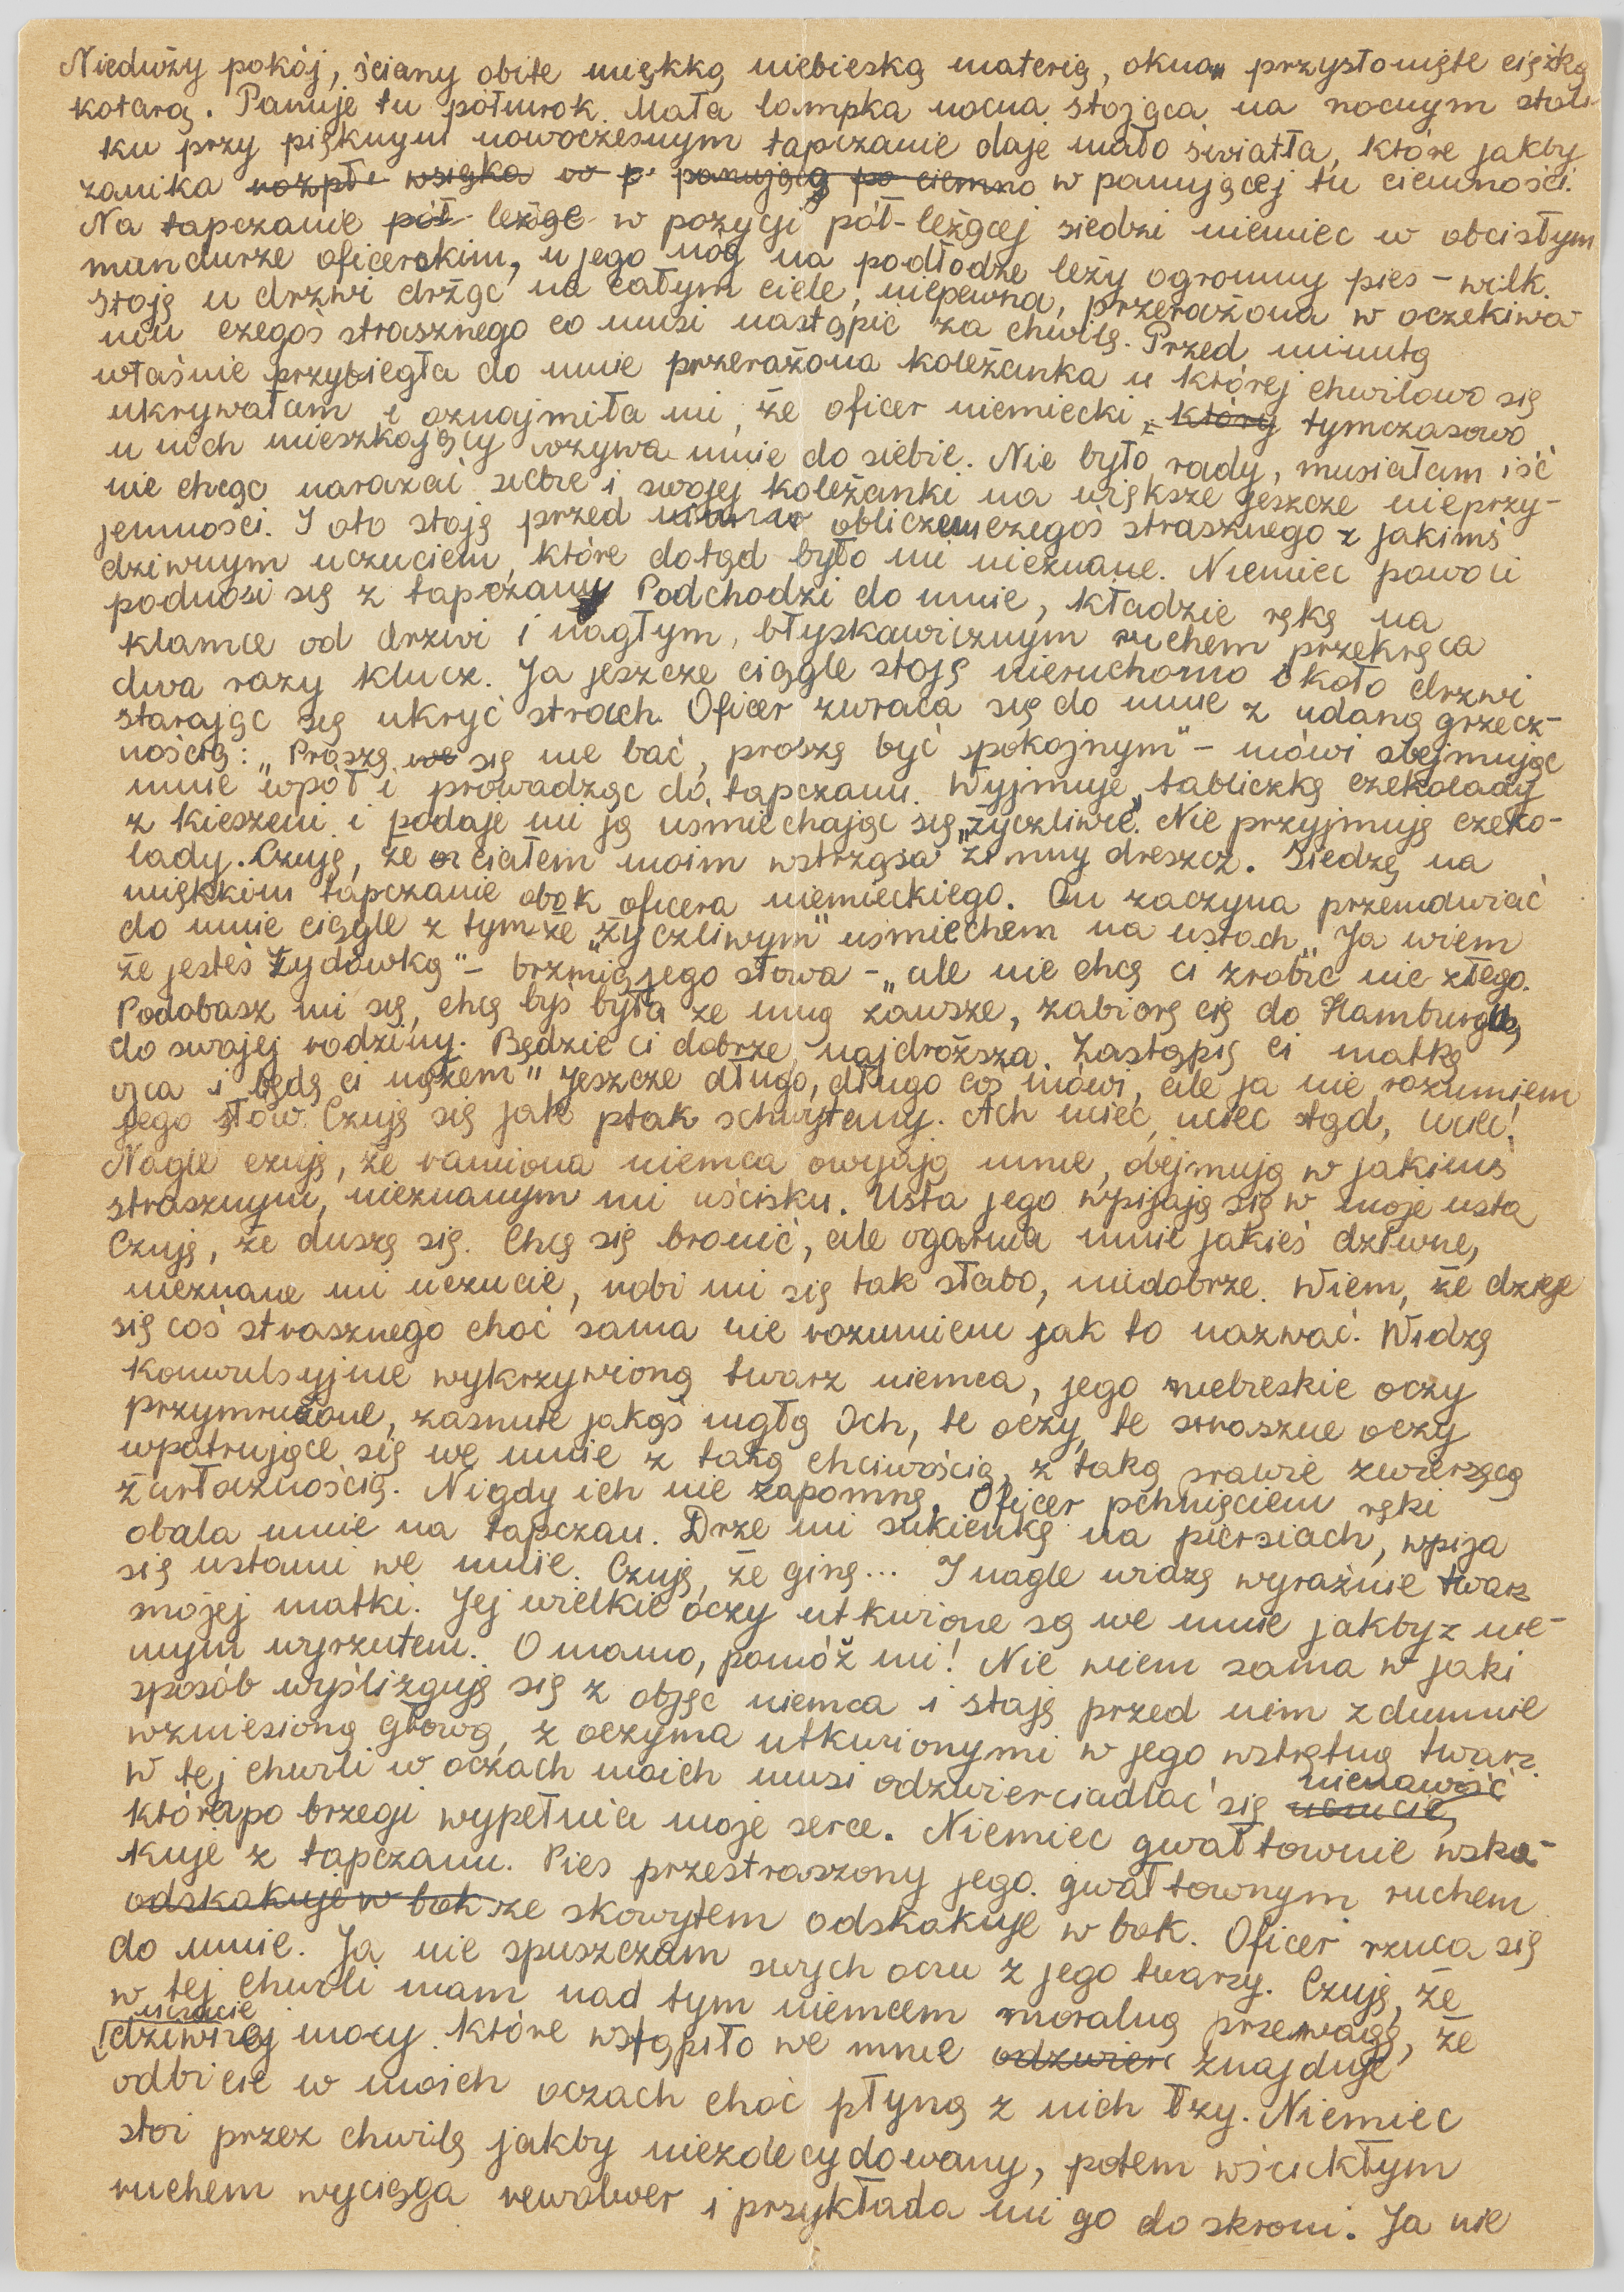 Nieduży pokój, ściany obite miękką niebieską materią, okna przysłonięte ciężką
kotarą. Panuje tu półmrok. Mała lampka nocna stojąca na nocnym stoli-
ku przy pięknym nowoczesnym tapczanie daje mało światła, które jakby
zanika rozpł wsiąka w p panującą po ciemno w panującej tu ciemności.
Na tapczanie pół leżąc w pozycji pół-leżącej siedzi niemiec w obcisłym
mundurze oficerskim, u jego nóg na podłodze leży ogromny pies - wilk.
Stoję u drzwi drżąc na całym ciele, niepewna, przerażona w oczekiwa
niu czegoś strasznego co musi nastąpić za chwilę. Przed minutą
właśnie przybiegła do mnie przerażona koleżanka u której chwilowo się
ukrywałam i oznajmiła mi, że oficer niemiecki, który tymczasowo
u nich mieszkający wzywa mnie do siebie. Nie było rady, musiałam iść
nie chcąc narażać siebie i swojej koleżanki na większe jeszcze nieprzy-
jemności. I oto stoję przed obliczem czegoś strasznego z jakimś
dziwnym uczuciem, które dotąd było mi nieznane. Niemiec powoli
podnosi się z tapczanu Podchodzi do mnie, kładzie rękę na
klamce od drzwi i nagłym, błyskawicznym ruchem przekręca
dwa razy klucz. Ja jeszcze ciągle stoję nieruchomo około drzwi
starając się ukryć strach. Oficer zwraca się do mnie z udaną grzecz-
nością: „Proszę we się nie bać, proszę być spokojnym" - mówi obejmując
mnie wpół i prowadząc do tapczanu. Wyjmuje tabliczkę czekolady
z kieszeni i podaje mi ją uśmiechając się „życzliwie. Nie przyjmuję czeko-
lady. Czuję, że ciałem moim wstrząsa zimny dreszcz. Siedzę na
miękkim tapczanie obok oficera niemieckiego. On zaczyna przemawiać
do mnie ciągle z tymże „życzliwym" uśmiechem na ustach „Ja wiem
że jesteś Żydówką" - brzmią jego słowa - „ale nie chcę ci zrobić nic złego.
Podobasz mi się, chcę byś była ze mną zawsze, zabiorę cię do Hamburga
do swojej rodziny. Będzie ci dobrze, najdroższa. Zastąpię ci matkę
ojca i będę ci mężem" Jeszcze długo, długo coś mówi, ale ja nie rozumiem
jego słów. Czuję się jak ptak schwytany. Ach uciec, uciec stąd, uciec!
Nagle czuję, że ramiona niemca owijają mnie, obejmują w jakimś
strasznym, nieznanym mi uścisku. Usta jego wpijają się w moje usta
Czuję, że duszę się. Chcę się bronić, ale ogarnia mnie jakieś dziwne,
nieznane mi uczucie, robi mi się tak słabo, niedobrze. Wiem, że dzieje
się coś strasznego choć sama nie rozumiem jak to nazwać. Widzę
konwulsyjnie wykrzywioną twarz niemca, jego niebieskie oczy
przymrużone, zasnute jakąś mgłą Och, te oczy, te straszne oczy
wpatrujące się we mnie z taką chciwością, z taką prawie zwierzęcą
żarłocznością. Nigdy ich nie zapomnę. Oficer pchnięciem ręki
obala mnie na tapczan. Drze mi sukienkę na piersiach, wpija
się ustami we mnie. Czuję, że ginę... I nagle widzę wyraźnie twarz
mojej matki. Jej wielkie oczy utkwione są we mnie jakby z nie-
mym wyrzutem. O mamo, pomóż mi! Nie wiem sama w jaki
sposób wyślizguję się z objęć niemca i staję przed nim z dumnie
wzniesioną głową, z oczyma utkwionymi w jego wstrętną twarz.
W tej chwili w oczach moich musi odzwierciadlać się uczucie, nienawiść
która po brzegi wypełnia moje serce. Niemiec gwałtownie wska-
kuje z tapczanu. Pies przestraszony jego gwałtownym ruchem
odskakuje w bok ze skowytem odskakuje w bok. Oficer rzuca się
do mnie. Ja nie spuszczam swych oczu z jego twarzy. Czuję, że
w tej chwili mam nad tym niemcem moralną przewagę, że
uczucie
[dziwnej mocy które wstąpiło we mnie odzwierc znajduje
odbicie w moich oczach choć płyną z nich łzy. Niemiec
stoi przez chwilę jakby niezdecydowany, potem wściekłym
ruchem wyciąga rewolwer i przykłada mi go do skroni. Ja nie